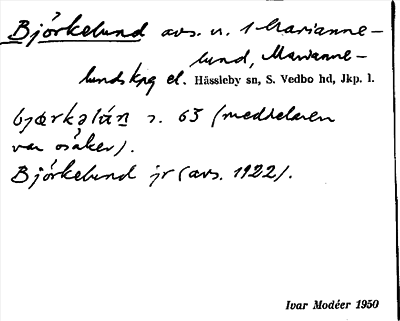 Björkelund avs. u. 1 Marianne-
lund, Marianne-
lunds kpg el. Hässleby sn, S. Vedbo hd, Jkp. l.
s. 63 (meddelaren
var osäker).
Björkelund jr (avs. 1922).
Ivar Modéer 1950